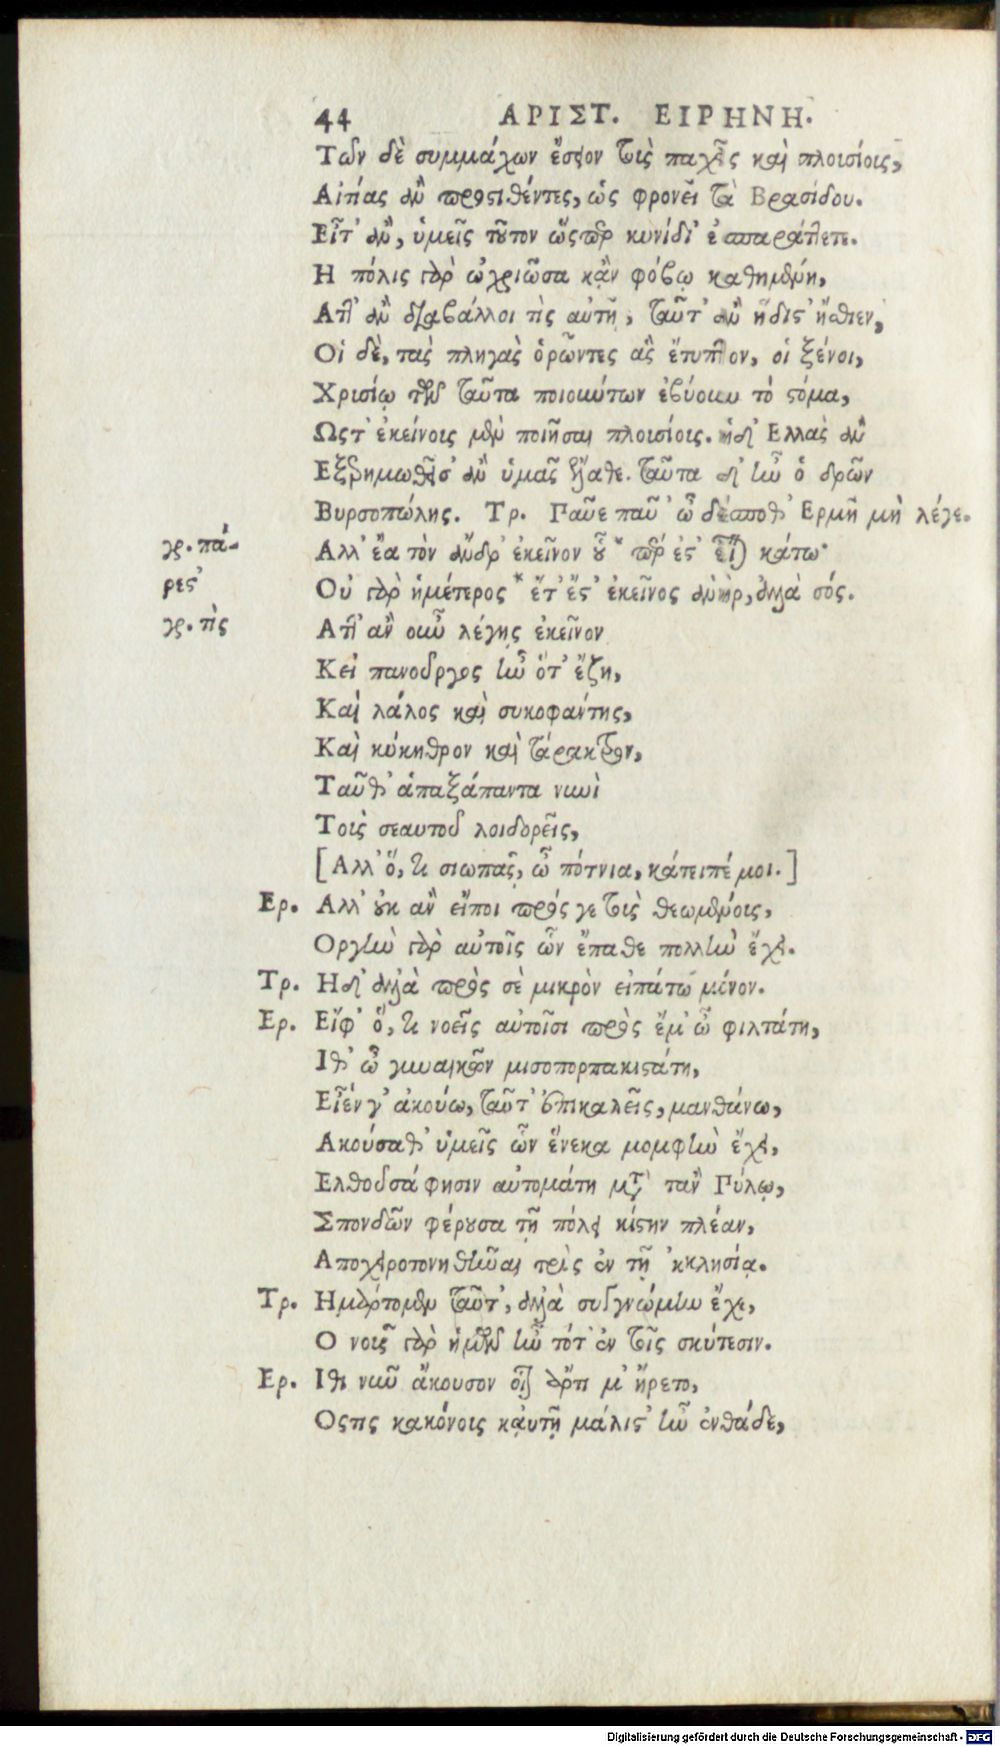 44 ΑΡΙΣΤ. ΕΙΡΗΝΗ.
Τῶν δὲ συμμάχων ἔσειον τοὺς παχεῖς καὶ πλουσίους,
Αἰτίας ἂν προςτιθέντες, ὡς φρονεῖ τὰ Βρασίδου.
Εἶτ' ἂν, ὑμεῖς τοῦτον ὥςπερ κυνίδι' ἐσπαράττετε.
Η πόλις γὰρ ὠχριῶσα κᾂν φόβῳ καθημένη,
Αττ' ἂν διαβάλλοι τὶς αὐτῇ, ταῦτ' ἂν ἥδιστ' ἤσθιεν,
Οἱ δὲ, τὰς πληγὰς ὁρῶντες ἃς ἐτύπτον, οἱ ξένοι,
Χρυσίῳ τῶν ταῦτα ποιούντων ἐβύουν τὸ στόμα,
Ωςτ' ἐκείνους μὲν ποιῆσαι πλουσίους. ἡ δ' Ελλὰς ἂν
Εξερημωθεῖσ' ἂν ὑμᾶς ἔλαθε. ταῦτα δ' ἦν ὁ δρῶν
Βυρσοπώλης. Τρ. Παῦε παῦ' ὦ δέσποθ' Ερμῆ μὴ λέγε.
γρ. πά- Αλλ' ἔα τὸν ἄνδρ' ἐκεῖνον οὗ * περ ἐς' εἶναι κάτω·
ρες' Οὐ γὰρ ἡμέτερος * ἔτ' ἔς' ἐκεῖνος ἀνὴρ, ἀλλὰ σός.
γρ. τὶς Αττ' ἂν οὖν λέγῃς ἐκεῖνον
Κεἰ πανοῦργος ἦν ὅτ' ἔζη,
Καὶ λάλος καὶ συκοφάντης,
Καὶ κύκηθρον καὶ τάρακτρον,
Ταῦθ' ἁπαξάπαντα νυνὶ
Τοὺς σεαυτοῦ λοιδορεῖς,
[Αλλ' ὅ, τι σιωπᾷς, ὦ πότνια, κάτειπέ μοι.]
Ερ. Αλλ' οὐκ ἂν εἴποι πρός γε τοὺς θεωμένους,
Οργὴν γὰρ αὐτοῖς ὧν ἔπαθε πολλὴν ἔχει.
Τρ. Ηδ' ἀλλὰ πρὸς σὲ μικρὸν εἰπάτω μόνον.
Ερ. Εἴφ' ὅ, τι νοεῖς αὐτοῖσι πρὸς ἔμ' ὦ φιλτάτη,
Ιθ' ὦ γυναικῶν μισοπορπακιστάτη,
Εἶέν γ' ἀκούω, ταῦτ' ἐπικαλεῖς, μανθάνω,
Ακούσαθ' ὑμεῖς ὧν ἕνεκα μομφὴν ἔχει,
Ελθοῦσά φησιν αὐτομάτη μετὰ τἀν Πύλῳ,
Σπονδῶν φέρουσα τῇ πόλει κίστην πλέαν,
Αποχειροτονηθῆναι τρὶς ἐν τῇ 'κκλησίᾳ.
Τρ. Ημάρτομεν ταῦτ', ἀλλὰ συγγνώμην ἔχε,
Ο νοῦς γὰρ ἡμῶν ἦν τότ' ἐν τοῖς σκύτεσιν.
Ερ. Ιθι νῦν ἄκουσον οἷον ἄρτι μ' ἤρετο,
Οςτις κακόνους καὐτῇ μάλιστ' ἦν ἐνθάδε,
Digitalisierung gefördert durch die Deutsche Forschungsgemeinschaft - DFG